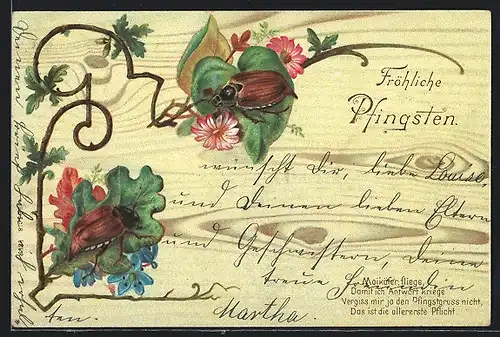 Fröhliche
Pfingsten.
wünscht Dir, liebe Louise,
und Deinen lieben Eltern
und Geschwistern, Deine
treue Freundin
Martha.
Maikäfer fliege,
Damit ich Antwort kriege
Vergiss mir ja den Pfingstgruss nicht,
Das ist die allererste Pflicht.
ten.